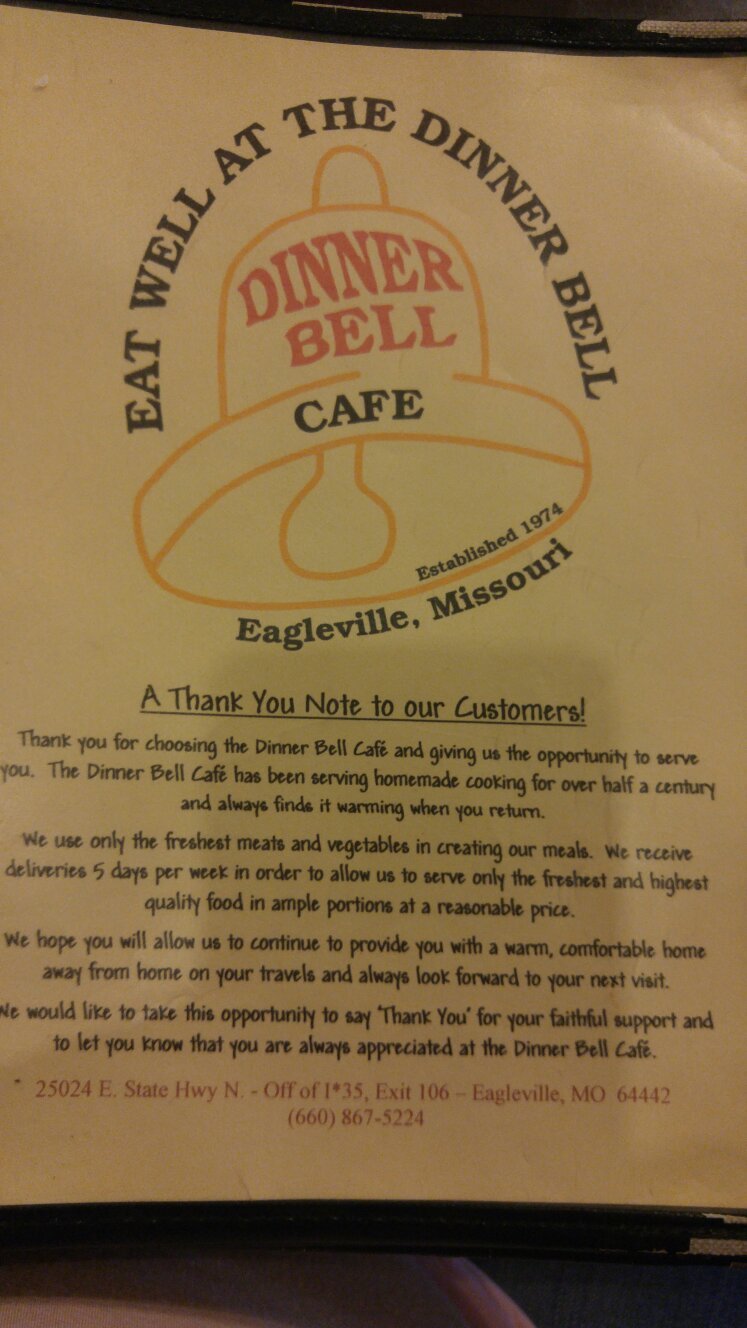 EAT WELL AT THE DINNER BELL
DINNER
BELL
CAFE
Established 1974
Eagleville, Missouri
A Thank You Note to our Customers!
Thank you for choosing the Dinner Bell Café and giving us the opportunity to serve
you. The Dinner Bell Café has been serving homemade cooking for over half a century
and always finds it warming when you return.
We use only the freshest meats and vegetables in creating our meals. We receive
deliveries 5 days per week in order to allow us to serve only the freshest and highest
quality food in ample portions at a reasonable price.
We hope you will allow us to continue to provide you with a warm, comfortable home
away from home on your travels and always look forward to your next visit.
We would like to take this opportunity to say 'Thank You' for your faithful support and
to let you know that you are always appreciated at the Dinner Bell Café.
25024 E. State Hwy N. - Off of I*35, Exit 106 – Eagleville, MO 64442
(660) 867-5224